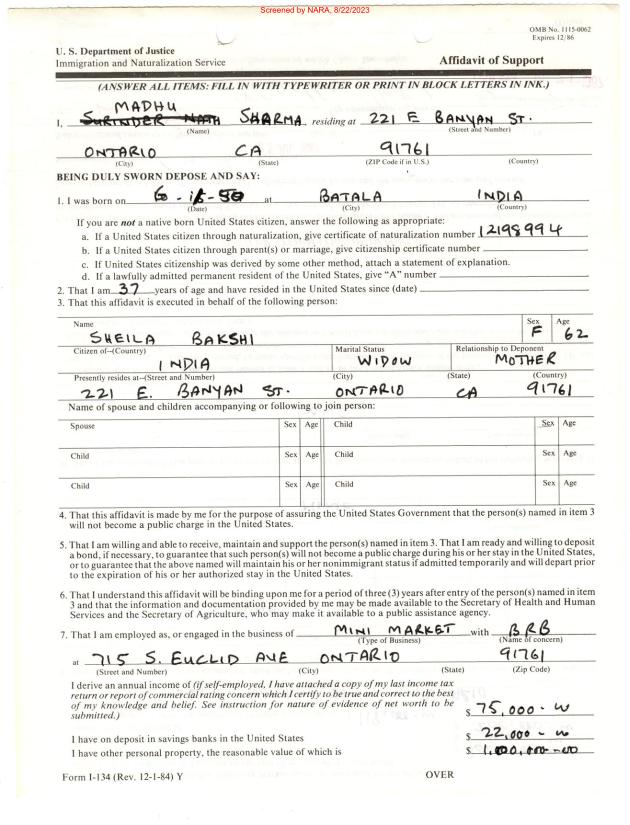 Screened by NARA, 8/22/2023
OMB No. 1115-0062
Expires 12/86
U. S. Department of Justice
Immigration and Naturalization Service
Affidavit of Support
(ANSWER ALL ITEMS: FILL IN WITH TYPEWRITER OR PRINT IN BLOCK LETTERS IN INK.)
MADHU
I, SURINDER NATH SHARMA residing at 221 E BANYAN ST.
(Name) (Street and Number)
ONTARIO CA 91761
(City) (State) (ZIP Code if in U.S.) (Country)
BEING DULY SWORN DEPOSE AND SAY:
1. I was born on at BATALA INDIA
(Date) (City) (Country)
If you are not a native born United States citizen, answer the following as appropriate:
a. If a United States citizen through naturalization, give certificate of naturalization number 12198994
b. If a United States citizen through parent(s) or marriage, give citizenship certificate number
c. If United States citizenship was derived by some other method, attach a statement of explanation.
d. If a lawfully admitted permanent resident of the United States, give "A" number
2. That I am 37 years of age and have resided in the United States since (date)
3. That this affidavit is executed in behalf of the following person:
Name Sex Age
SHEILA BAKSHI F 62
Citizen of--(Country) Marital Status Relationship to Deponent
INDIA WIDOW MOTHER
Presently resides at--(Street and Number) (City) (State) (Country)
221 E. BANYAN ST. ONTARIO CA 91761
Name of spouse and children accompanying or following to join person:
Spouse Sex Age Child Sex Age
Child Sex Age Child Sex Age
Child Sex Age Child Sex Age
4. That this affidavit is made by me for the purpose of assuring the United States Government that the person(s) named in item 3
will not become a public charge in the United States.
5. That I am willing and able to receive, maintain and support the person(s) named in item 3. That I am ready and willing to deposit
a bond, if necessary, to guarantee that such person(s) will not become a public charge during his or her stay in the United States,
or to guarantee that the above named will maintain his or her nonimmigrant status if admitted temporarily and will depart prior
to the expiration of his or her authorized stay in the United States.
6. That I understand this affidavit will be binding upon me for a period of three (3) years after entry of the person(s) named in item
3 and that the information and documentation provided by me may be made available to the Secretary of Health and Human
Services and the Secretary of Agriculture, who may make it available to a public assistance agency.
7. That I am employed as, or engaged in the business of MINI MARKET with BRB
(Type of Business) (Name of concern)
at 715 S. EUCLID AVE ONTARIO 91761
(Street and Number) (City) (State) (Zip Code)
I derive an annual income of (if self-employed, I have attached a copy of my last income tax
return or report of commercial rating concern which I certify to be true and correct to the best
of my knowledge and belief. See instruction for nature of evidence of net worth to be
submitted.) $ 75,000
I have on deposit in savings banks in the United States $ 22,000
I have other personal property, the reasonable value of which is $
Form I-134 (Rev. 12-1-84) Y OVER